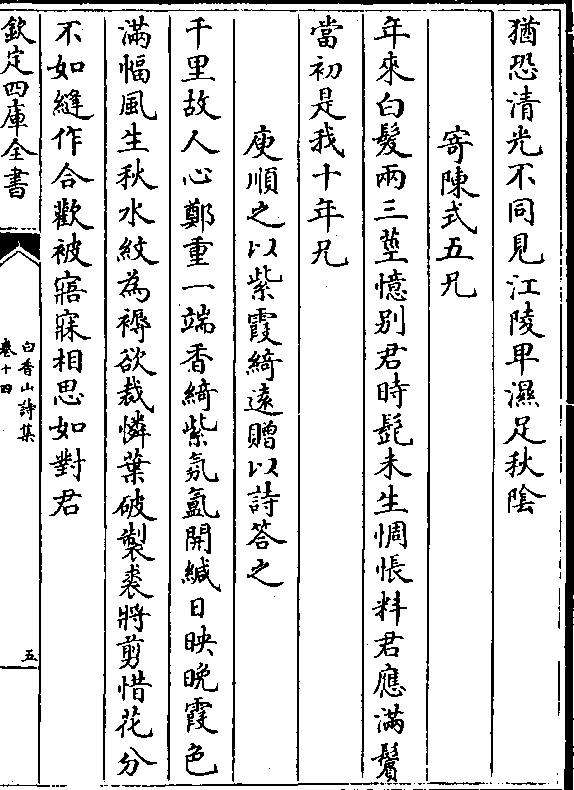 猶恐清光不同見江陵卑濕足秋隂
寄陳式五兄
年來白髮兩三莖憶别君時髭未生惆悵料君應滿鬢
當初是我十年兄
庾順之以紫霞綺遠贈以詩答之
千里故人心鄭重一端香綺紫氛氲開緘日映晚霞色
滿幅風生秋水紋為褥欲裁憐葉破製裘將剪惜花分
不如縫作合歡被寤寐相思如對君
欽定四庫全書
白香山詩集
卷十四
五